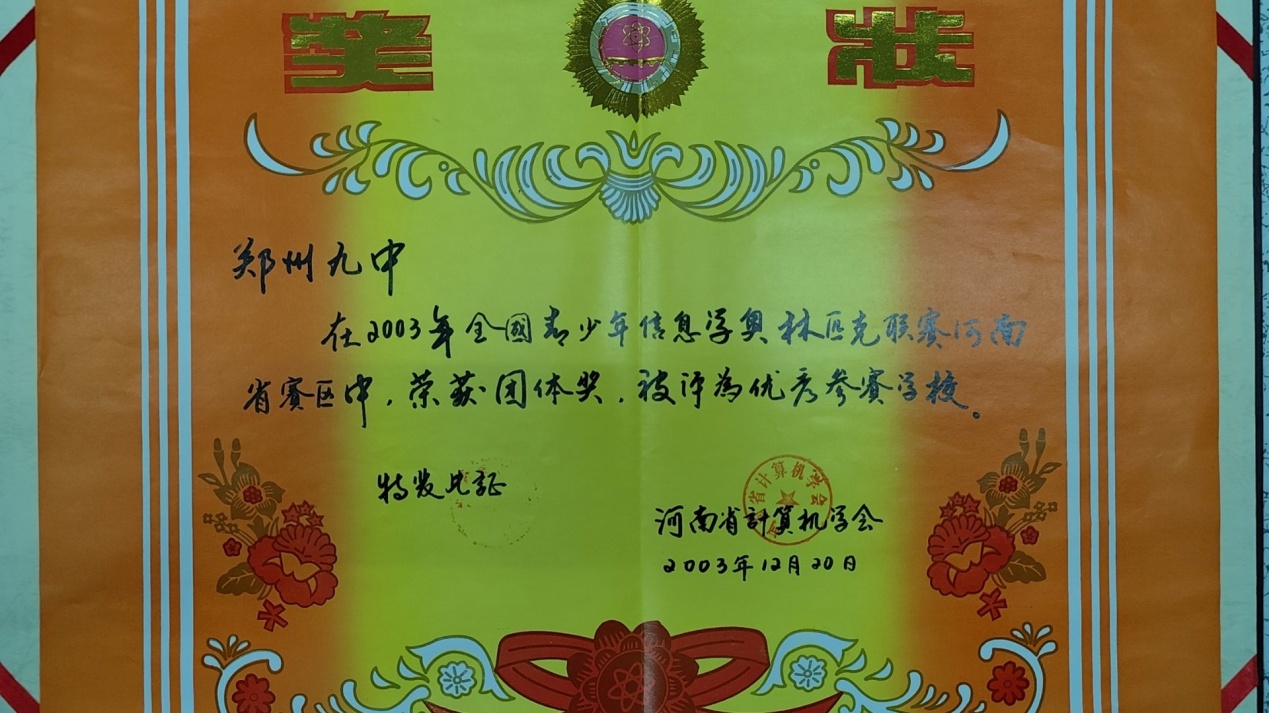 奖状
郑州九中
在2003年全國青少年信息学奥林匹克联赛河南
省赛区中,荣获团体奖,被评为优秀参赛学校。
特发此证
省计算机学会
河南省計算机学会
2003年12月20日